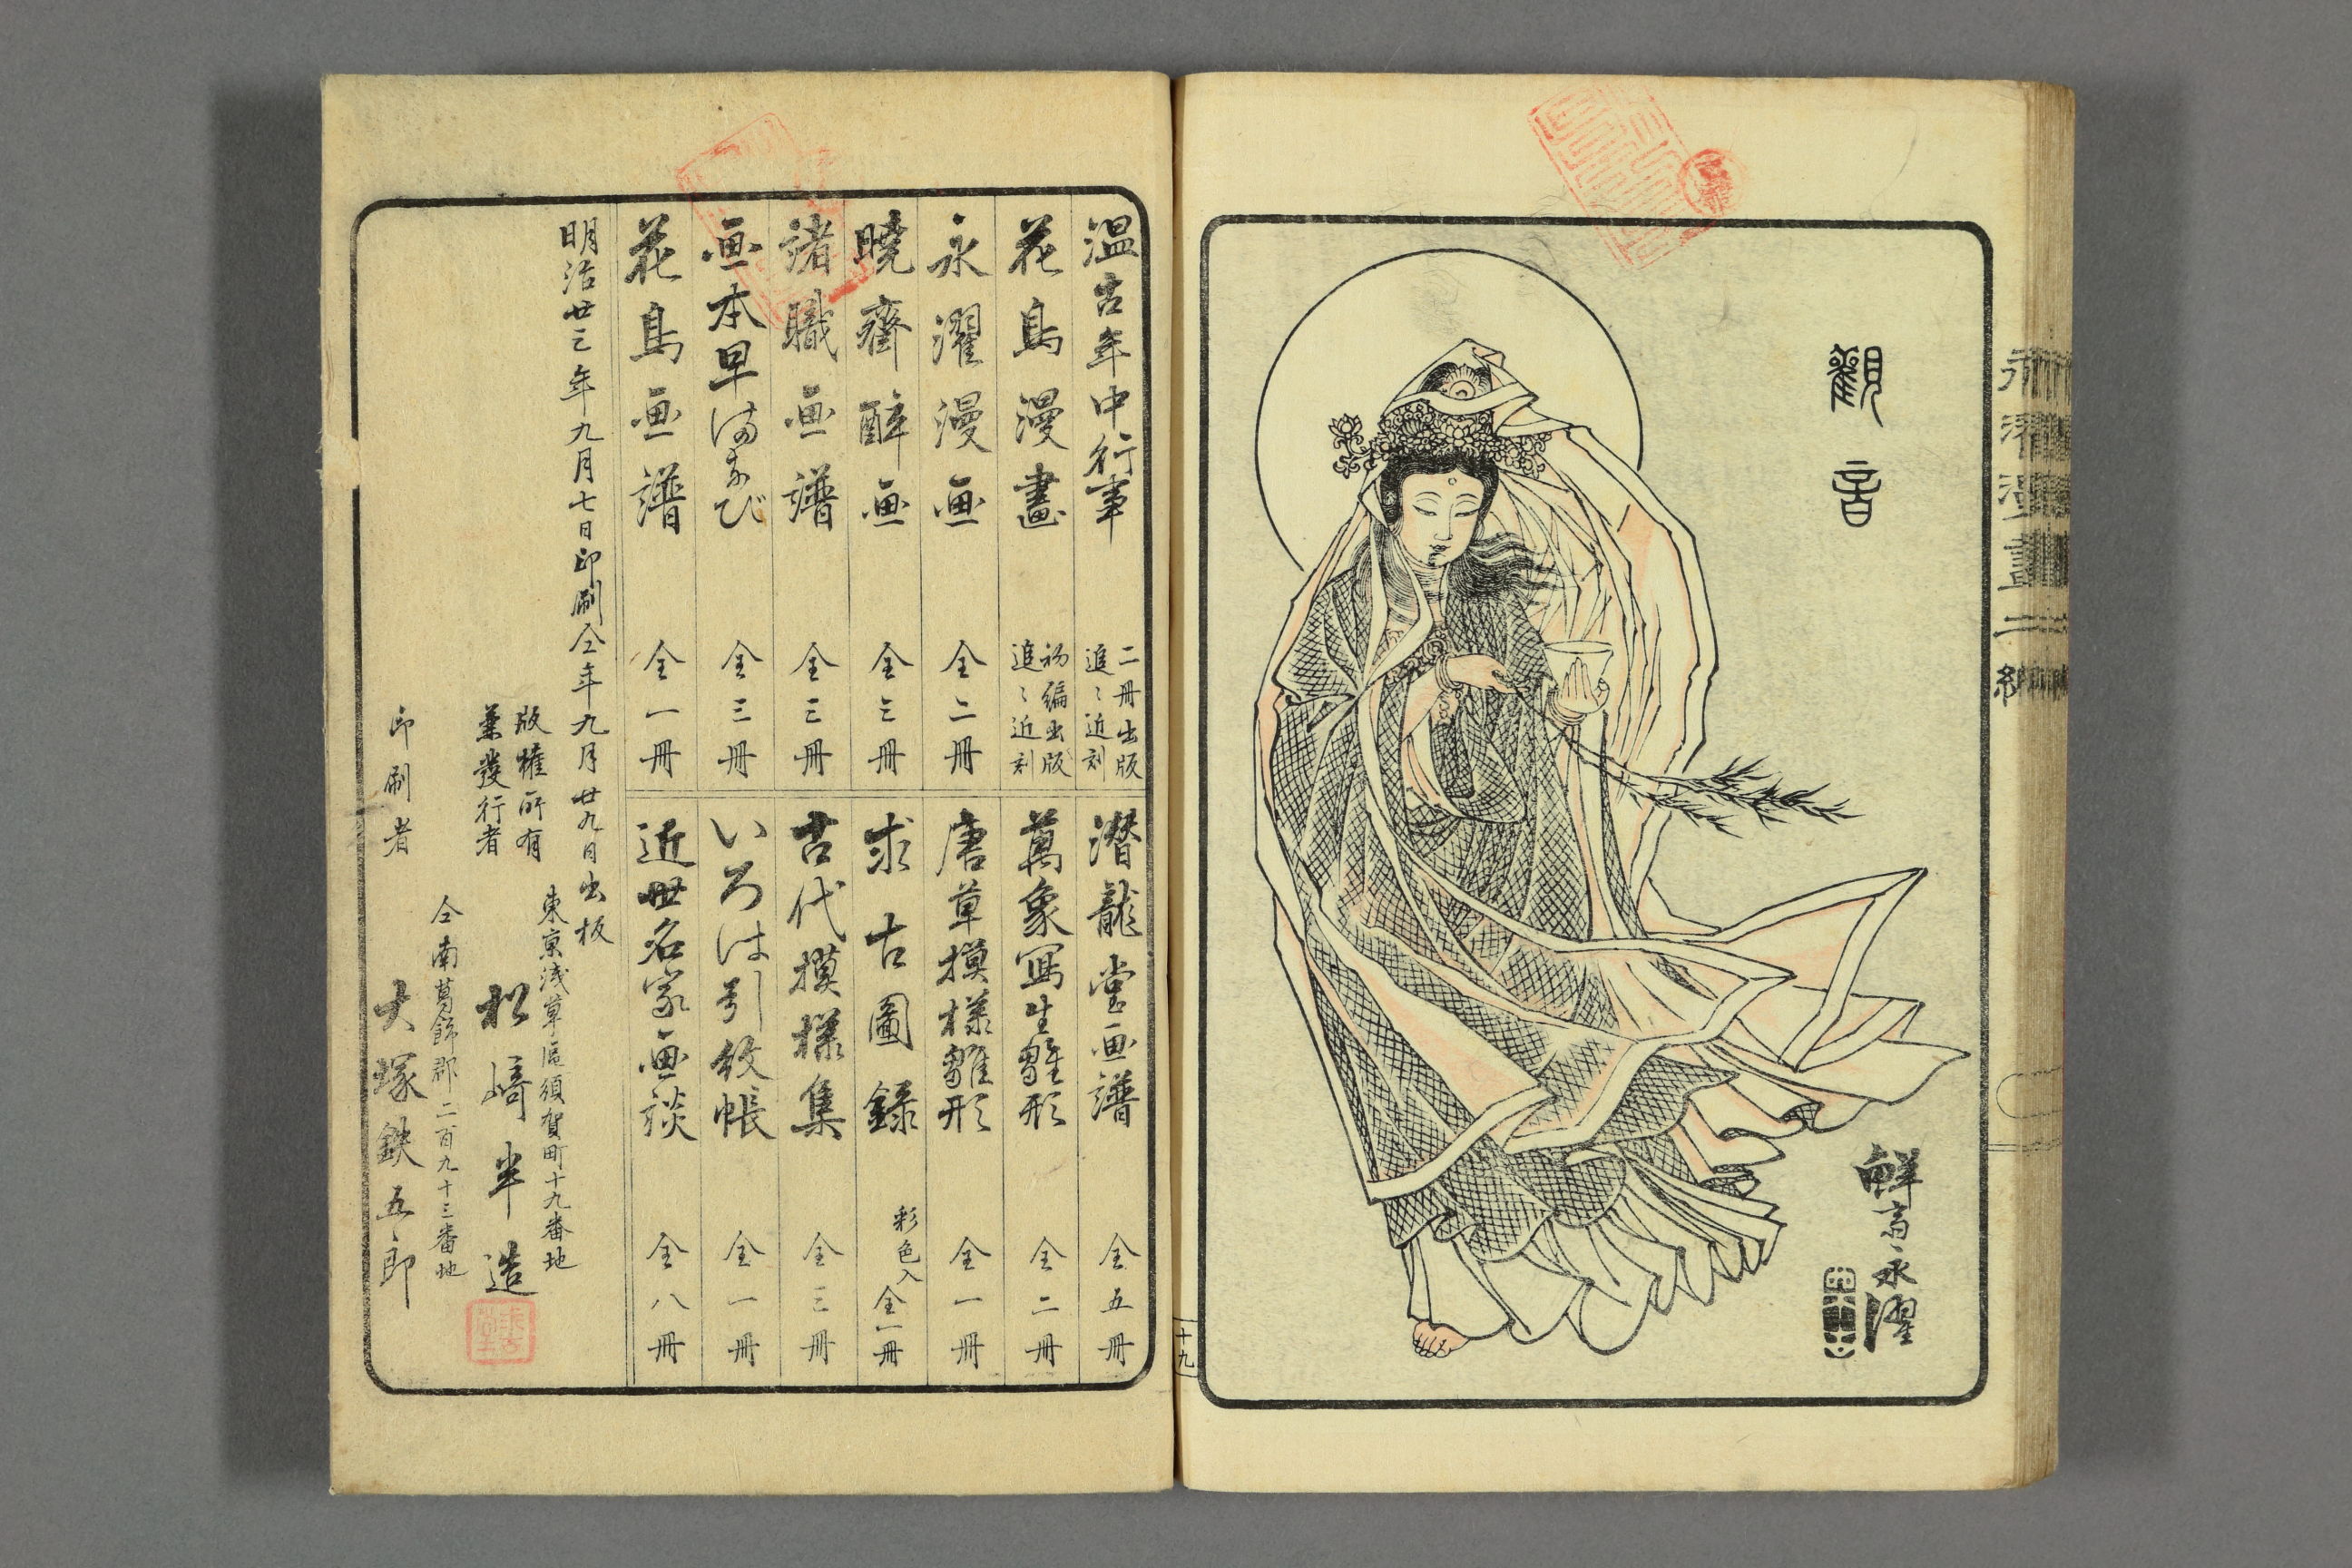 觀音
鮮斎永濯
十九
温古年中行事
二冊出版
追〻近刻
花鳥漫畫
初編出版
追〻近刻
永濯漫画
全二冊
暁齋酔画
全三冊
諸職画譜
全三冊
画本早まなび
全三冊
花鳥画譜
全一冊
潜龍堂画譜
全五冊
萬象寫生雛形
全二冊
唐草摸様雛形
全一冊
求古圖録
彩色入
全一冊
古代摸様集
全三冊
いろは引紋帳
全一冊
近世名家画談
全八冊
明治廿三年九月七日印刷仝年九月廿九日出板
東京浅草區須賀町十九番地
版権所有
兼發行者
松﨑半造
仝南葛飾郡二百九十三番地
印刷者
大塚鉄五郎